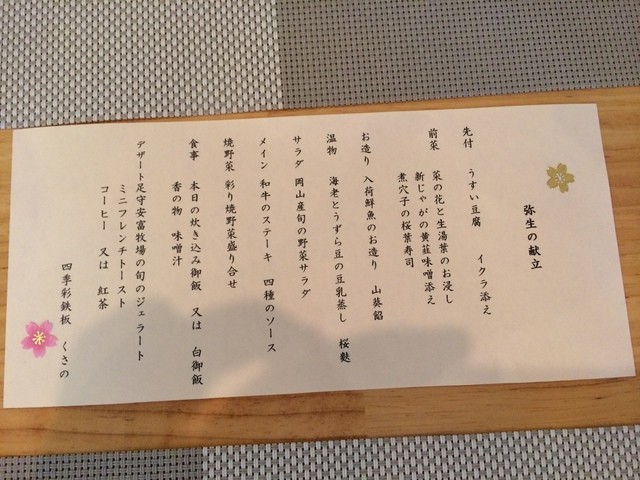 弥生の献立
先付 うすい豆腐 イクラ添え
前菜 菜の花と生湯葉のお浸し
新じゃがの黄韮味噌添え
煮穴子の桜葉寿司
お造り 入荷鮮魚のお造り 山葵餡
温物 海老とうずら豆の豆乳蒸し 桜麩
サラダ 岡山産旬の野菜サラダ
メイン 和牛のステーキ 四種のソース
焼野菜 彩り焼野菜盛り合せ
食事 本日の炊き込み御飯 又は 白御飯
香の物 味噌汁
デザート 足守安富牧場の旬のジェラート
ミニフレンチトースト
コーヒー 又は 紅茶
四季彩鉄板 くさの